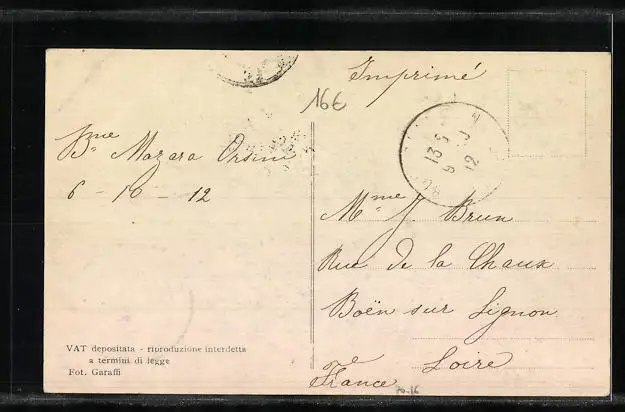 Imprimé
16€
Bne Mazara Orsini
6 - 10 - 12
Mme J. Brun
Rue de la Chaux
Boën sur Lignon
Loire
France
13 5
9 12
VAT depositata - riproduzione interdetta
a termini di legge
Fot. Garaffi
70.16